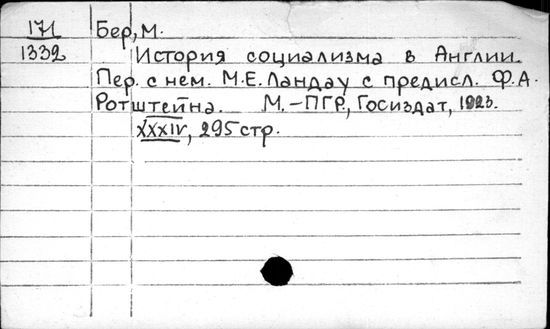 171 Бер, М.
1332 История социализма в Англии.
Пер. с нем. М.Е. Ландау с предисл. Ф.А.
Ротштейна. М.-ПГР., Госиздат, 1923.
XXXIV, 295 стр.